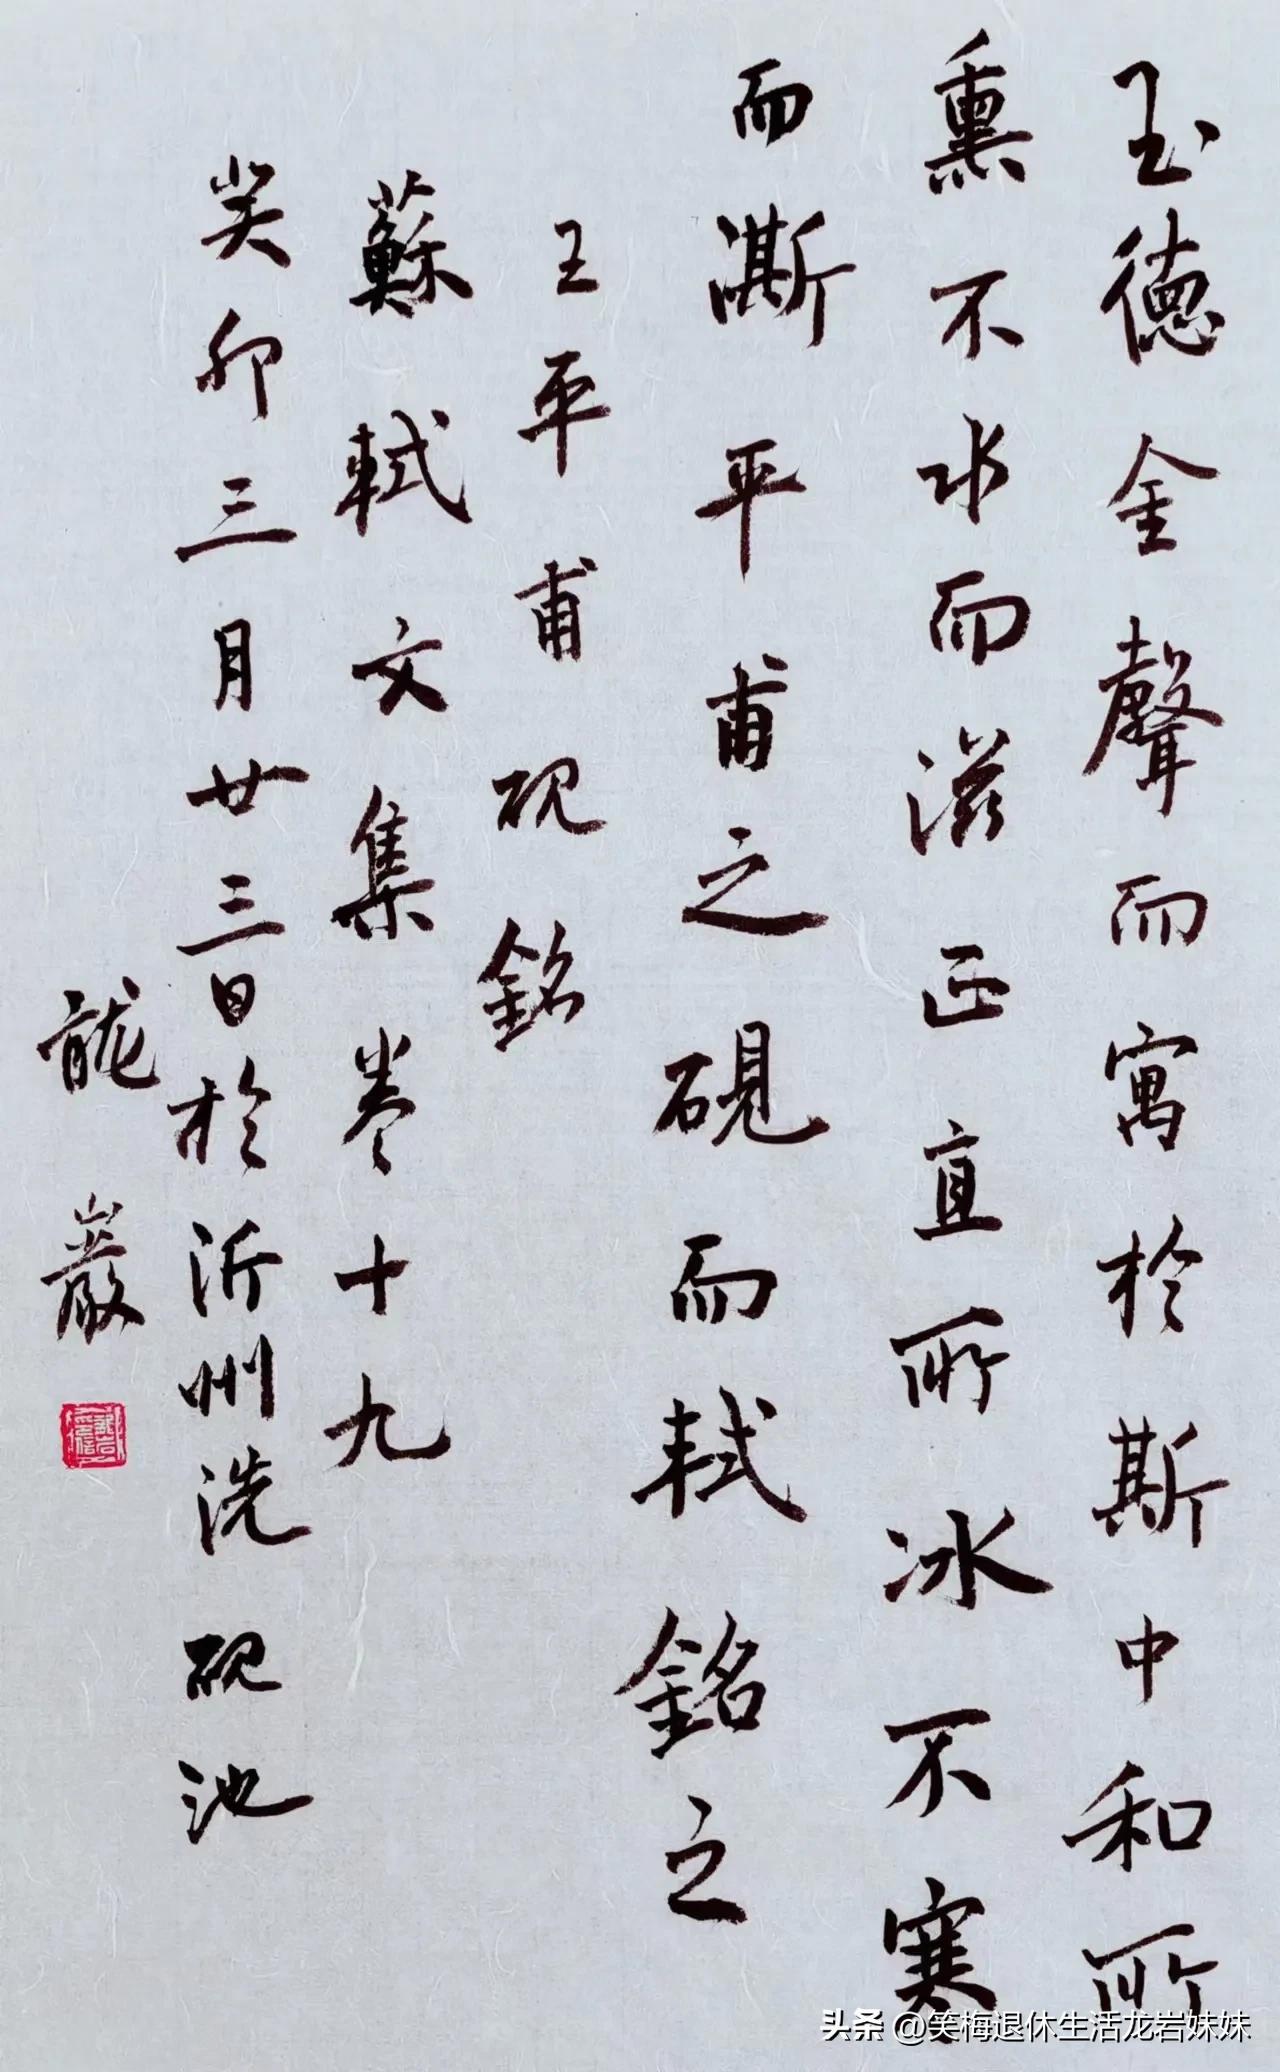 玉德金聲而寓於斯中和所
熏不水而滋正直所冰不寒
而澌平甫之硯而軾銘之
王平甫砚銘
蘇軾文集卷十九
癸卯三月廿三日於沂州洗砚池
龍巖
头条 @笑梅退休生活龙岩妹妹